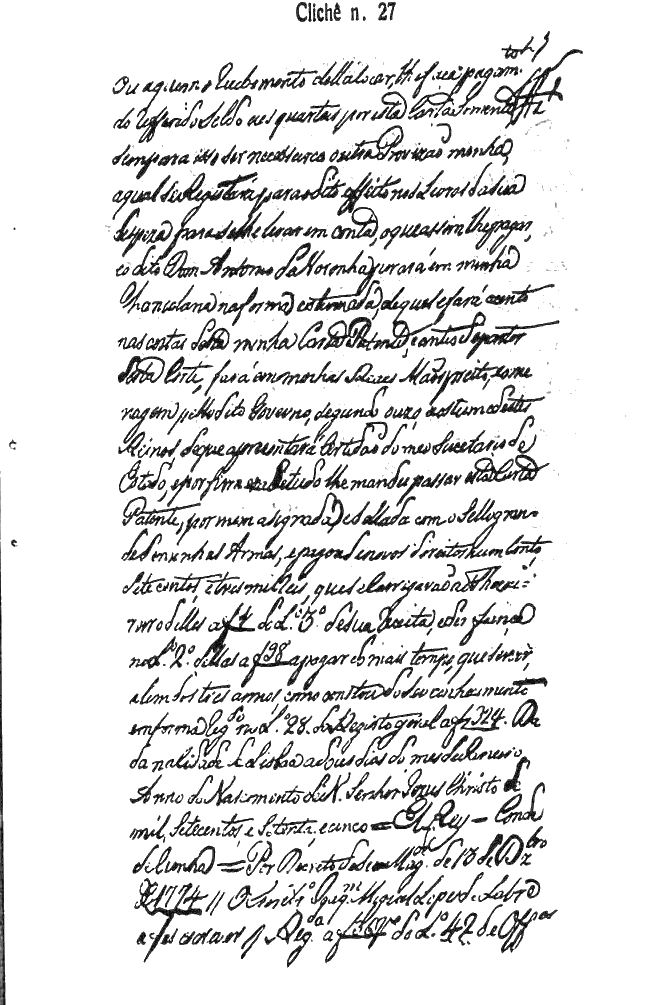 Clichê n. 27
Ou aquem o Recebimento della tocar, lhe fará pagam.
do refferido Soldo aos quarteis por esta Carta somente
sem para isso ser necessario outra Provizaõ minha,
a qual se Registará para o dito effeito nos Livros da sua
despeza para se lhe levar em conta, o que assim lhe pagar,
e o dito Dom Antonio de Noronha jurará em minha
Chancelaria na forma costumada, de que se fará acento
nas costas desta minha Carta Patente, e antes de partir
desta Corte, fará em minhas Reaes Maõs preito, e ome
nagem pello dito Governo, segundo o uzo, e costume destes
Reinos, de que aprezentará Certidaõ do meu Secretario de
Estado, e por firmeza de tudo lhe mandei passar esta Carta
Patente, por mim asignada, e sellada com o Sello gran-
de de minhas Armas, e pagou de novos direitos hum conto,
Sete centos, e tres mil reis, que se carregaraõ ao Thezou-
reiro delles a f 1 do L.º 3.º de sua Receita, e deu fiança
no L.º 2.º dellas a f 98 a pagar do mais tempo, que servir,
alem dos tres annos, como constou do seu conhecimento
em forma Reg.do no L.º 28. do Registo geral a f 324. Da
da na Cidade de Lisboa aos dias do mes de Janeiro
Anno do Nascimento de N. Senhor Jezus Christo de
mil, Setecentos, e Setenta, e cinco = El Rey = Conde
da Cunha = Por Decreto de Sua Mag.de de 13 de Dz.bro
de 1774 // O Secretr.º Miguel Lopes Labre
a fes escrever // Reg.da a f do L.º 42 de Off.os